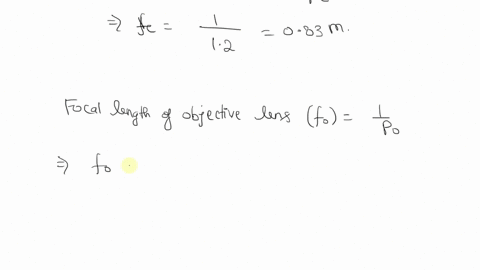 ⇒ fe = 1/1.2 = 0.83 m.
Focal length of objective lens (f₀) = 1/P₀
⇒ f₀